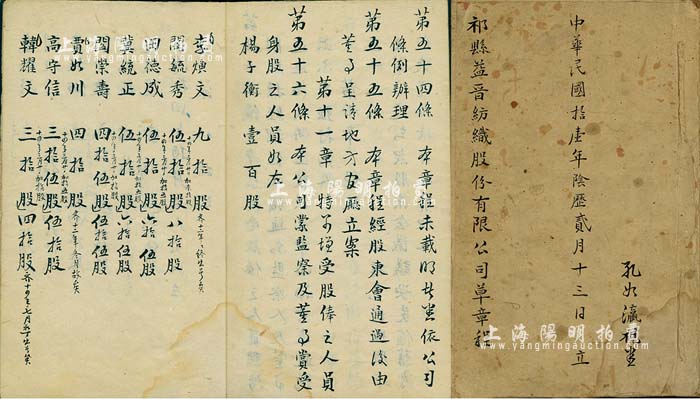 中華民國拾壹年陰歷貳月十三日立
祁縣益晋紡織股份有限公司草章程
孔如瀛
第五十四條 本章程未載明者悉依公司
條例辦理
第五十五條 本章程經股東會通過後由
董事呈請地方官廳立案
第十一章 特別增受股俸之人員
第五十六條 本公司蒙監察及董事賞受
身股之人員如左
楊子衡 壹百股
李煩文 九拾股
閻毓秀 伍拾股 八拾股
田德成 伍拾股 六拾伍股
冀統正 伍拾股 六拾伍股
閻榮壽 四拾伍股 伍拾伍股
賈如川 四拾股
高守信 三拾股 伍拾股
韓耀文 三拾股 四拾股
上海陽明拍賣
www.yangmingauction.com
上海陽明拍賣
www.yangmingauction.com